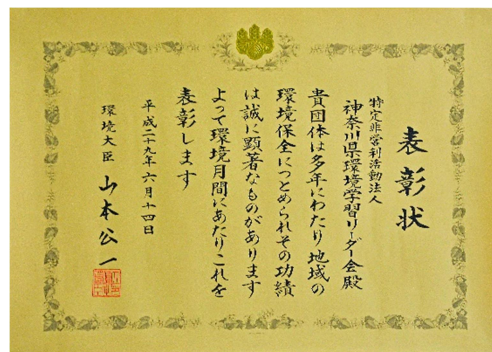 表彰状
特定非営利活動法人
神奈川県環境学習リーダー会殿
貴団体は多年にわたり地域の
環境保全につとめられその功績
は誠に顕著なものがあります
よって環境月間にあたりこれを
表彰します
平成二十九年六月十四日
環境大臣 山本公一